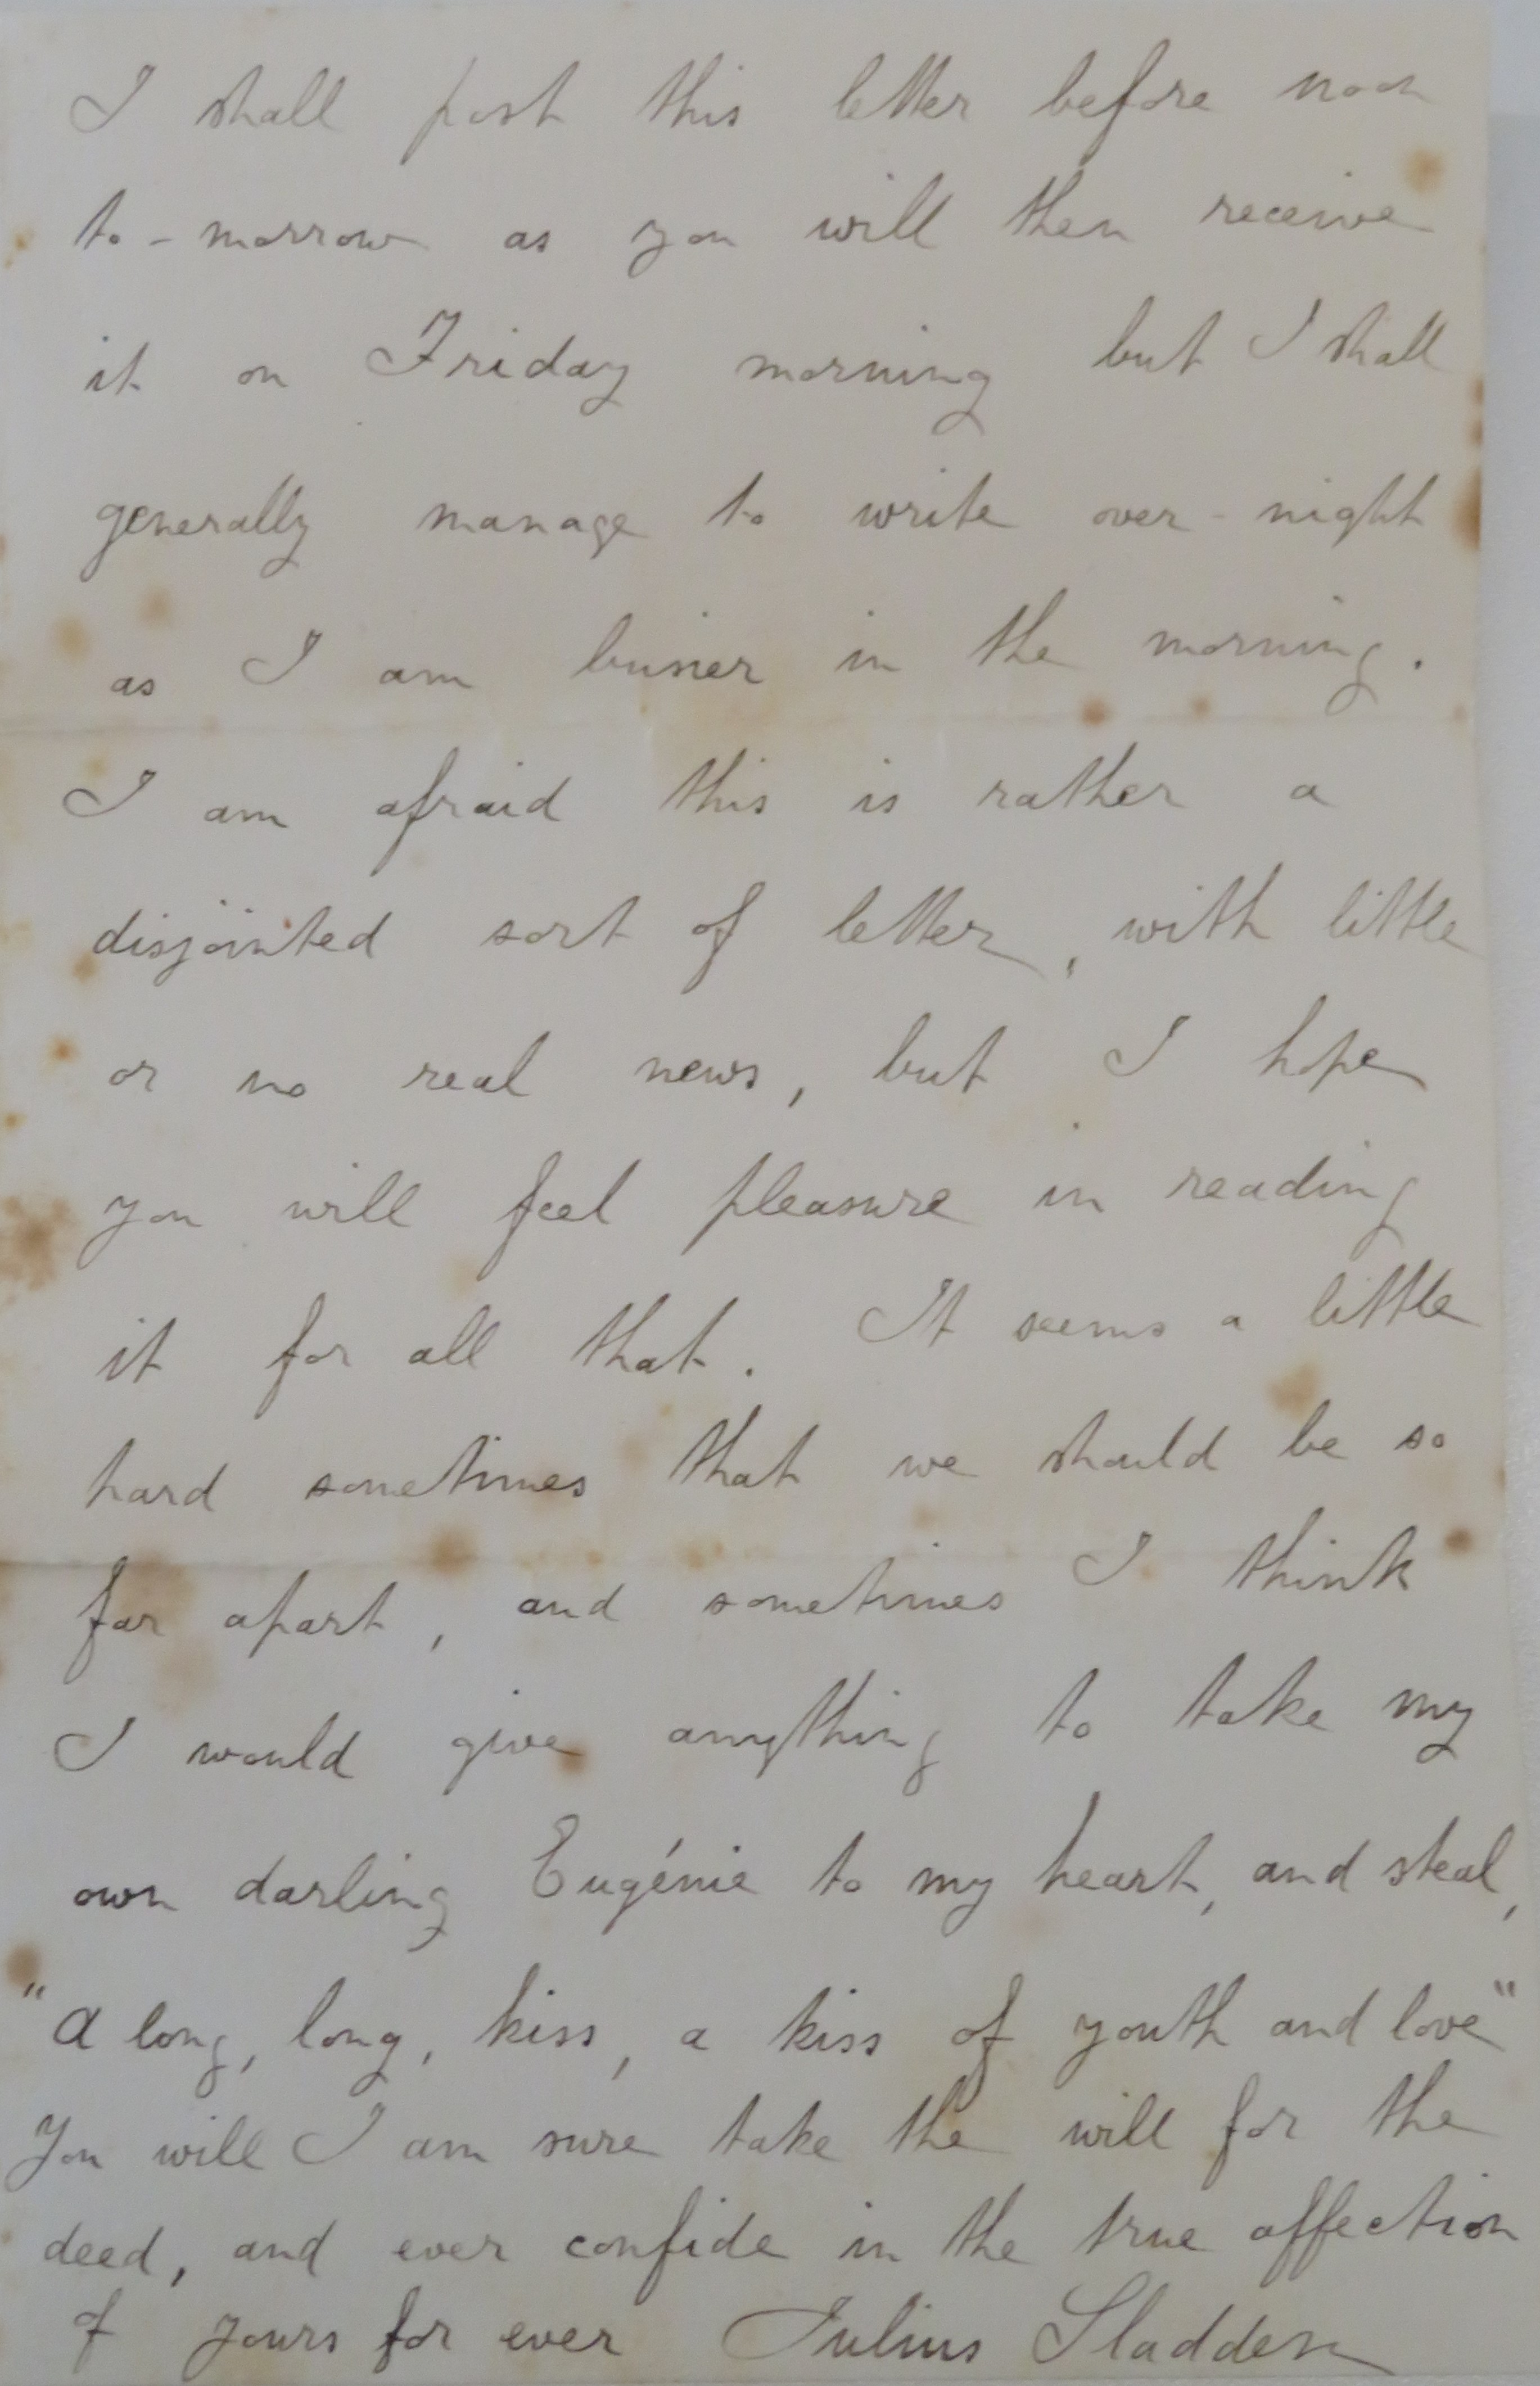 I shall post this letter before noon
to-morrow as you will then receive
it on Friday morning but I shall
generally manage to write over-night
as I am busier in the morning.
I am afraid this is rather a
disjointed sort of letter, with little
or no real news, but I hope
you will feel pleasure in reading
it for all that. It seems a little
hard sometimes that we should be so
far apart, and sometimes I think
I would give anything to take my
own darling Eugénie to my heart, and steal,
"A long, long, kiss, a kiss of youth and love"
You will I am sure take the will for the
deed, and ever confide in the true affection
of yours for ever Julius Sladden